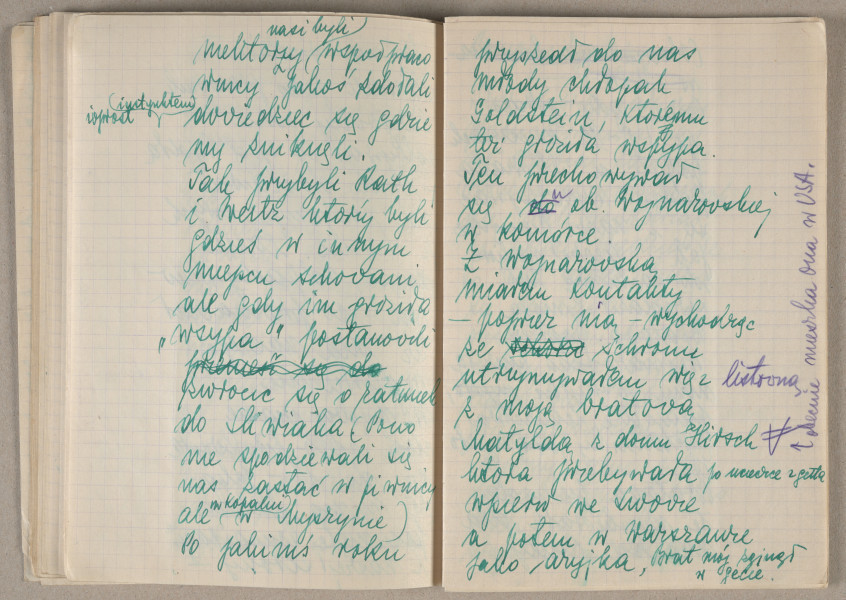 nasi byli
niektórzy (współpraco
wnicy) jakoś zdołali
(instynktem)
wprost
dowiedzieć się gdzie
my zniknęli.
Tak przybyli Rath
i Weitz którzy byli
gdzieś w innym
miejscu schowani
ale gdy im groziła
„wsypa" postanowili
zwrócić się o ratunek
do Sliwiaka (Pono
nie spodziewali się
nas zastać w piwnicy
w kopalni
ale w Kupczynie)
Po jakimś roku
przyszedł do nas
młody chłopak
Goldstein, któremu
też groziła wsypa.
Ten przechowywał
się u ob. Wojnarowskiej
w komórce.
Z Wojnarowską
miałem kontakty
– poprzez nią – wychodząc
ze schronu
utrzymywałem więź listowną
z moją bratową
Matyldą z domu Hirsch
która przebywała po ucieczce z getta
wpierw we Lwowie
a potem w Warszawie
jako aryjka, Brat mój zginął
w gecie.
obecnie mieszka ona w USA.